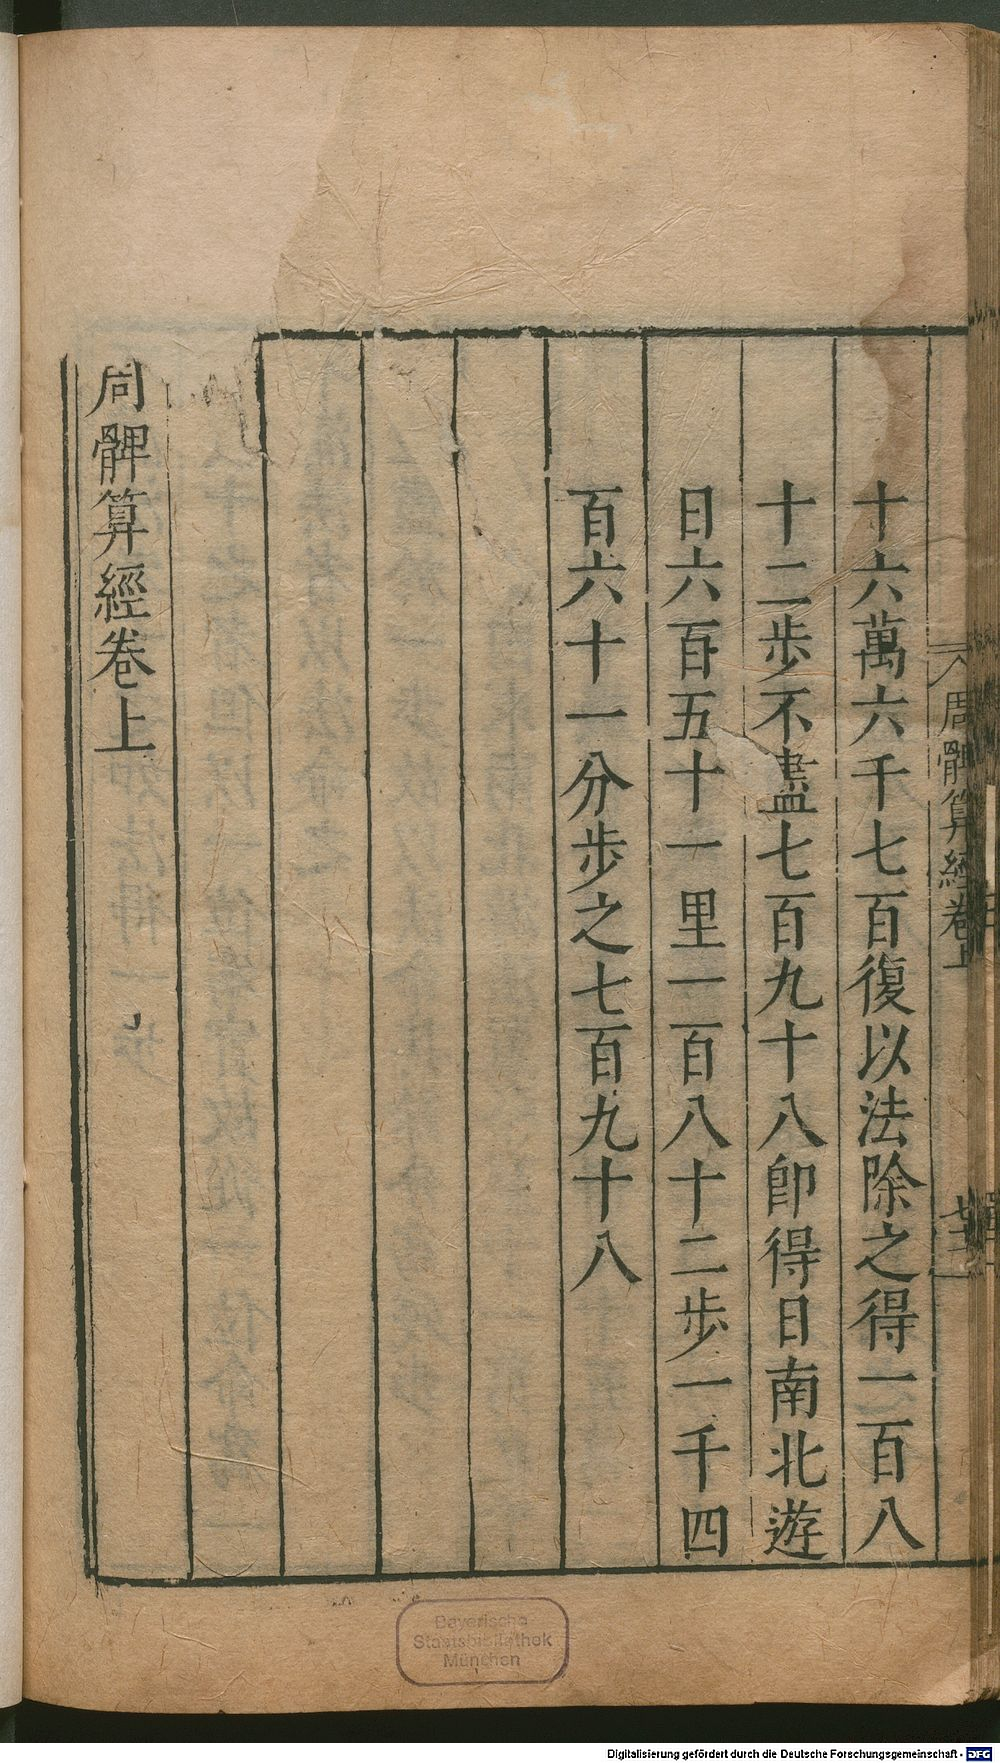 周髀算經卷上
十六萬六千七百復以法除之得一百八
十二步不盡七百九十八即得日南北遊
日六百五十一里一百八十二步一千四
百六十一分步之七百九十八
周髀算經卷上
Bayerische
Staatsbibliothek
München
Digitalisierung gefördert durch die Deutsche Forschungsgemeinschaft - DFG